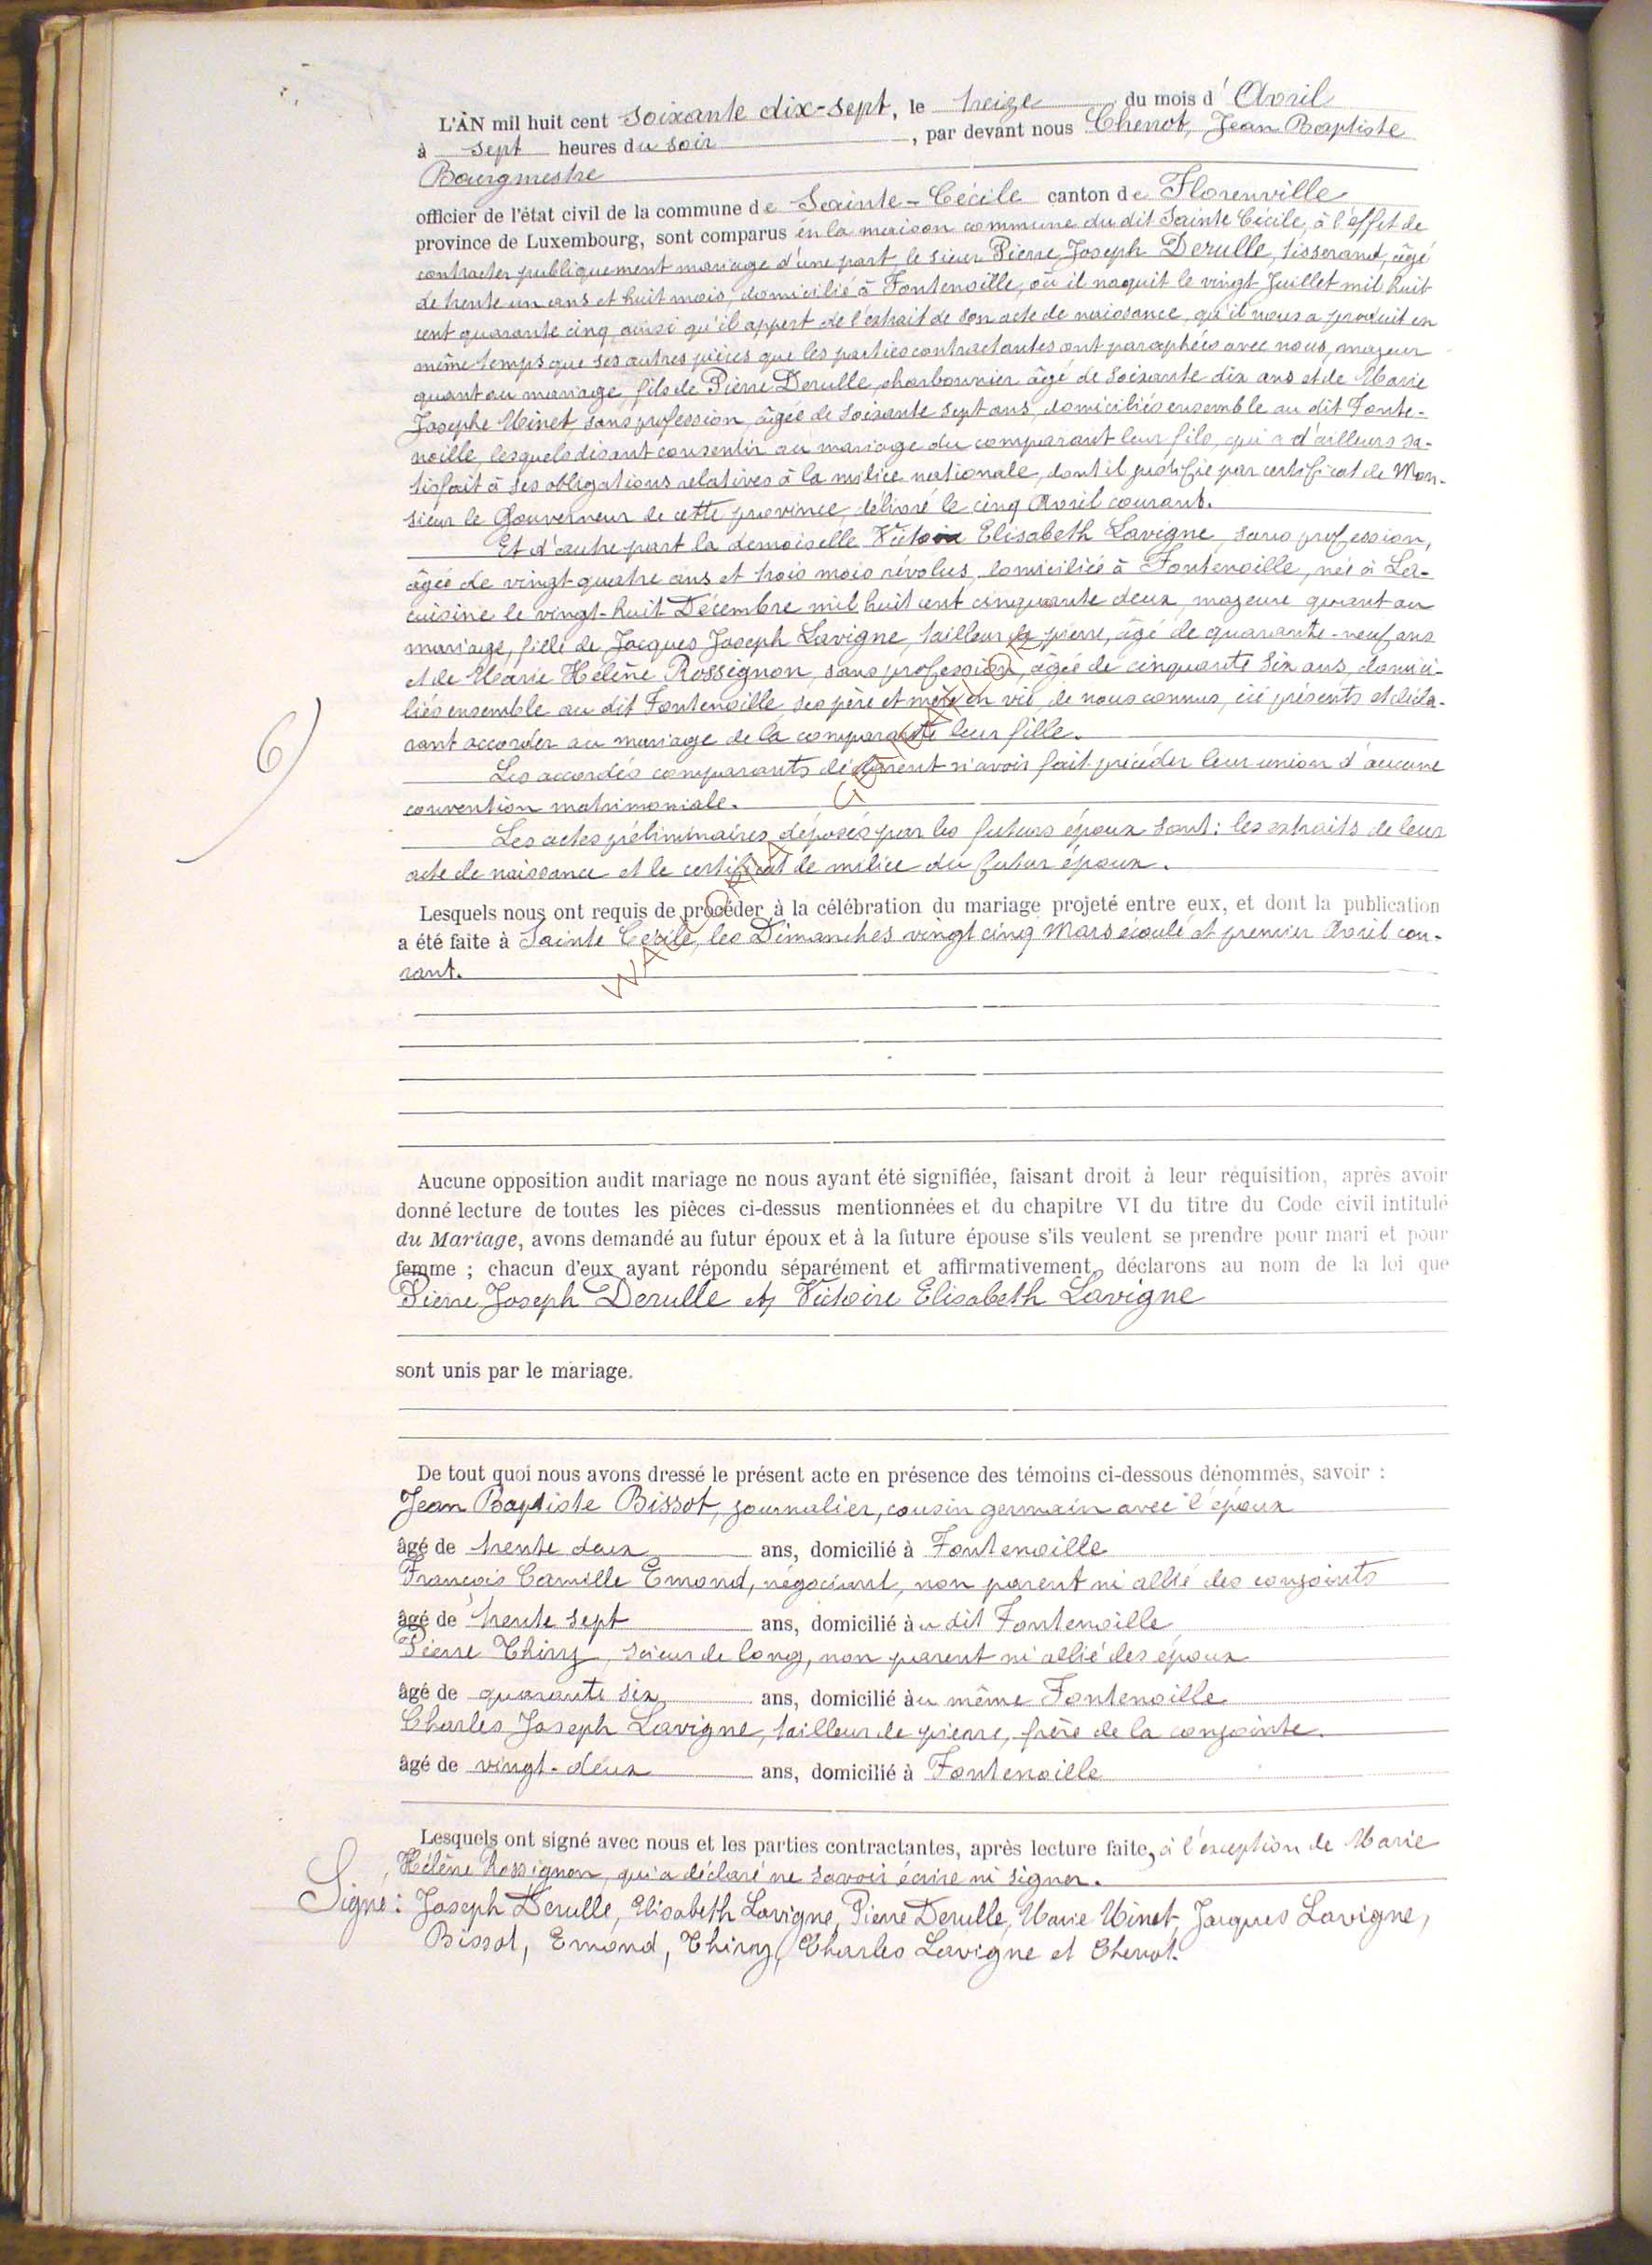 L'AN mil huit cent soixante dix-sept, le treize du mois d'Avril
à sept heures du soir, par devant nous Chenot, Jean Baptiste
Bourgmestre
officier de l'état civil de la commune de Sainte-Cécile canton de Florenville
province de Luxembourg, sont comparus en la maison commune du dit Sainte Cécile, à l'effet de
contracter publiquement mariage d'une part, le sieur Pierre Joseph Derulle, tisserand, âgé
de trente un ans et huit mois, domicilié à Fontenoille, où il naquit le vingt Juillet mil huit
cent quarante cinq, ainsi qu'il appert de l'extrait de son acte de naissance, qu'il nous a produit en
même temps que ses autres pièces que les parties contractantes ont paraphées avec nous, majeur
quant au mariage, fils de Pierre Derulle, charbonnier âgé de soixante dix ans et de Marie
Josephe Minet, sans profession, âgée de soixante sept ans, domiciliés ensemble au dit Fonte-
noille, lesquels disant consentir au mariage du comparant leur fils, qui a d'ailleurs sa-
tisfait à ses obligations relatives à la milice nationale, dont il justifie par certificat de Mon-
sieur le Gouverneur de cette province, délivré le cinq Avril courant.
Et d'autre part la demoiselle Victoire Elisabeth Lavigne, sans profession,
âgée de vingt-quatre ans et trois mois révolus, domiciliée à Fontenoille, née à La-
cuisine le vingt-huit Décembre mil huit cent cinquante deux, majeure quant au
mariage, fille de Jacques Joseph Lavigne, tailleur de pierre, âgé de quarante-neuf ans
et de Marie Hélène Rossignon, sans profession, âgée de cinquante six ans, domici-
liés ensemble au dit Fontenoille, ses père et mère en vie, de nous connus, ici présents et décla-
rant accorder au mariage de la comparante leur fille.
6)
Les accordés comparants déclarent n'avoir fait précéder leur union d'aucune
convention matrimoniale.
Les actes préliminaires déposés par les futurs époux sont: les extraits de leur
acte de naissance et le certificat de milice du futur époux.
Lesquels nous ont requis de procéder à la célébration du mariage projeté entre eux, et dont la publication
a été faite à Sainte Cécile, les Dimanches vingt cinq Mars écoulé et premier Avril cou-
rant.
Aucune opposition audit mariage ne nous ayant été signifiée, faisant droit à leur réquisition, après avoir
donné lecture de toutes les pièces ci-dessus mentionnées et du chapitre VI du titre du Code civil intitulé
du Mariage, avons demandé au futur époux et à la future épouse s'ils veulent se prendre pour mari et pour
femme ; chacun d'eux ayant répondu séparément et affirmativement, déclarons au nom de la loi que
Pierre Joseph Derulle et Victoire Elisabeth Lavigne
sont unis par le mariage.
De tout quoi nous avons dressé le présent acte en présence des témoins ci-dessous dénommés, savoir :
Jean Baptiste Bissot, journalier, cousin germain avec l'époux
âgé de trente deux ans, domicilié à Fontenoille
François Camille Emond, négociant, non parent ni allié des conjoints
âgé de trente sept ans, domicilié au dit Fontenoille
Pierre Thiry, scieur de long, non parent ni allié des époux
âgé de quarante six ans, domicilié au même Fontenoille
Charles Joseph Lavigne, tailleur de pierre, frère de la conjointe.
âgé de vingt-deux ans, domicilié à Fontenoille
Lesquels ont signé avec nous et les parties contractantes, après lecture faite, à l'exception de Marie
Hélène Rossignon, qui a déclaré ne savoir écrire ni signer.
Signé: Joseph Derulle, Elisabeth Lavigne, Pierre Derulle, Marie Minet, Jacques Lavigne,
Bissot, Emond, Thiry, Charles Lavigne et Chenot.